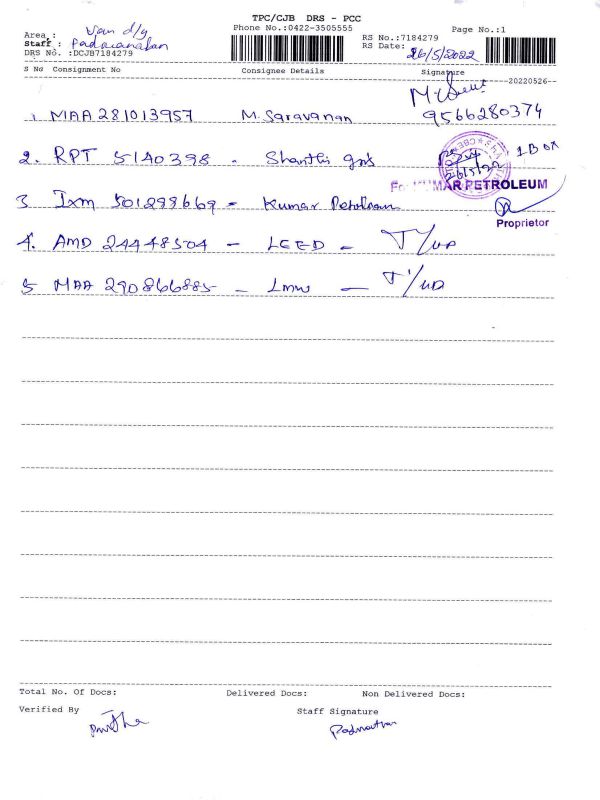 TPC/CJB DRS - PCC
Phone No.:0422-3505555
Page No.:1
Area : Van d/y
RS No.:7184279
Staff : Padmanaban
RS Date: 26/5/2022
DRS No. :DCJB7184279
S No Consignment No Consignee Details Signature
--20220526--
1. MAA 281013957 M. Saravanan 9566280374
2. RPT 5140398 - Shanthi 1 BOX
26/5/22
KUMAR PETROLEUM
3 Ixm 501298669 - Kumar Petroleum
Proprietor
4. AMD 24448504 - LEED - T/up
5 MAA 290866885 - Lmw - T/up
Total No. Of Docs: Delivered Docs: Non Delivered Docs:
Verified By Staff Signature